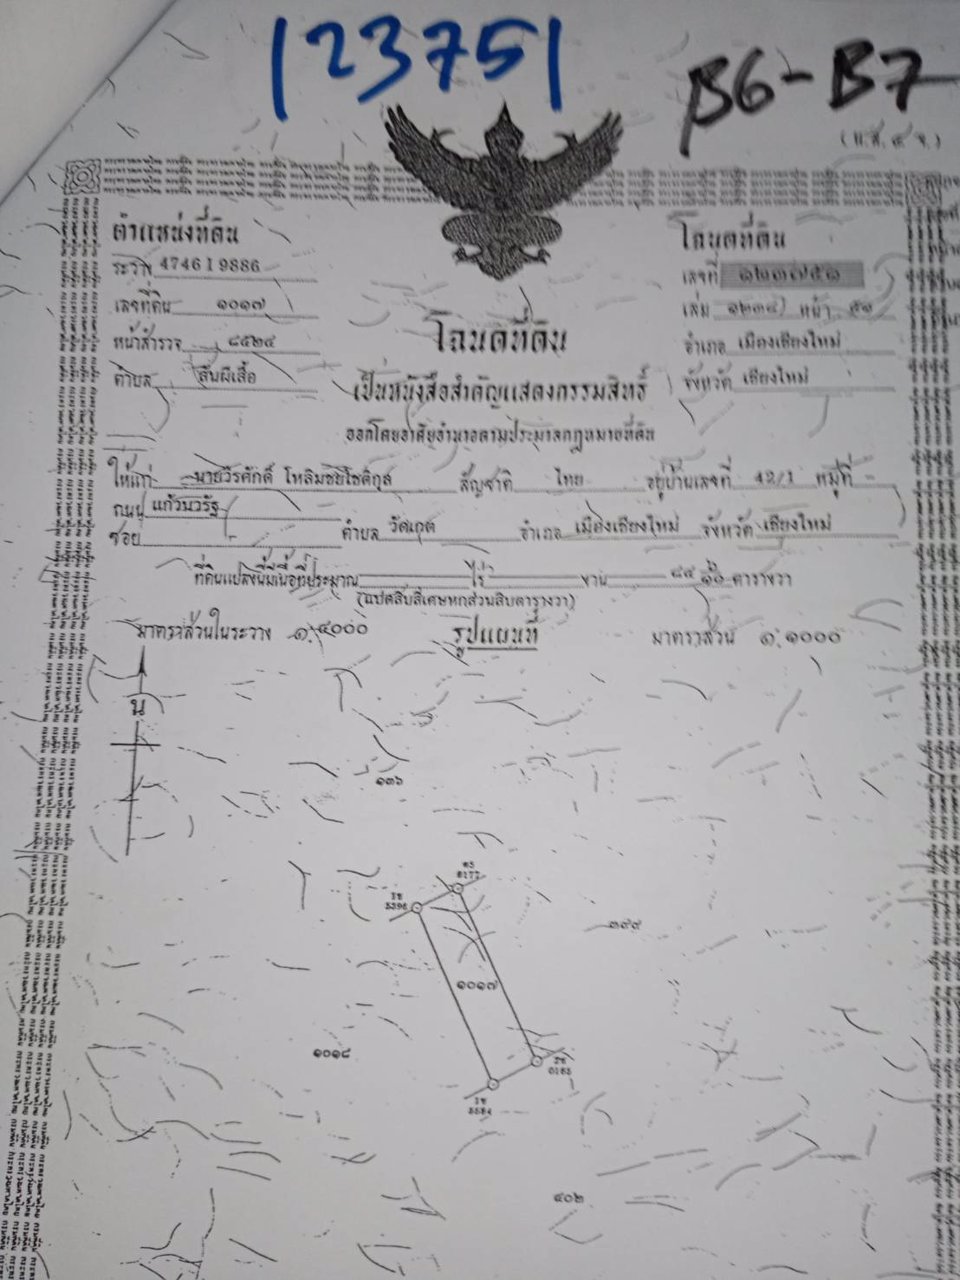 123751
B6-B7
(น.ส. ๔ จ.)
ตำแหน่งที่ดิน
ระวาง 4746 I 9886
เลขที่ดิน ๑๐๑๗
หน้าสำรวจ ๘๕๒๔
ตำบล สันผีเสื้อ
โฉนดที่ดิน
เลขที่ ๑๒๓๗๕๑
เล่ม หน้า ๕๑
อำเภอ เมืองเชียงใหม่
จังหวัด เชียงใหม่
โฉนดที่ดิน
เป็นหนังสือสำคัญแสดงกรรมสิทธิ์
ออกโดยอาศัยอำนาจตามประมวลกฎหมายที่ดิน
ให้แก่ นายวีรศักดิ์ โหลิมชยโชติกุล สัญชาติ ไทย อยู่บ้านเลขที่ 42/1 หมู่ที่ -
ถนน แก้วนวรัฐ
ซอย ตำบล วัดเกต อำเภอ เมืองเชียงใหม่ จังหวัด เชียงใหม่
ที่ดินแปลงนี้มีเนื้อที่ประมาณ ไร่ งาน ๘๔ ๖/๑๐ ตารางวา
(แปดสิบสี่เศษหกส่วนสิบตารางวา)
มาตราส่วนในระวาง ๑:๔๐๐๐ รูปแผนที่ มาตราส่วน ๑:๑๐๐๐
น
๑๓๖
๓๙๙
๑๐๑๗
๑๐๑๘
๔๐๒